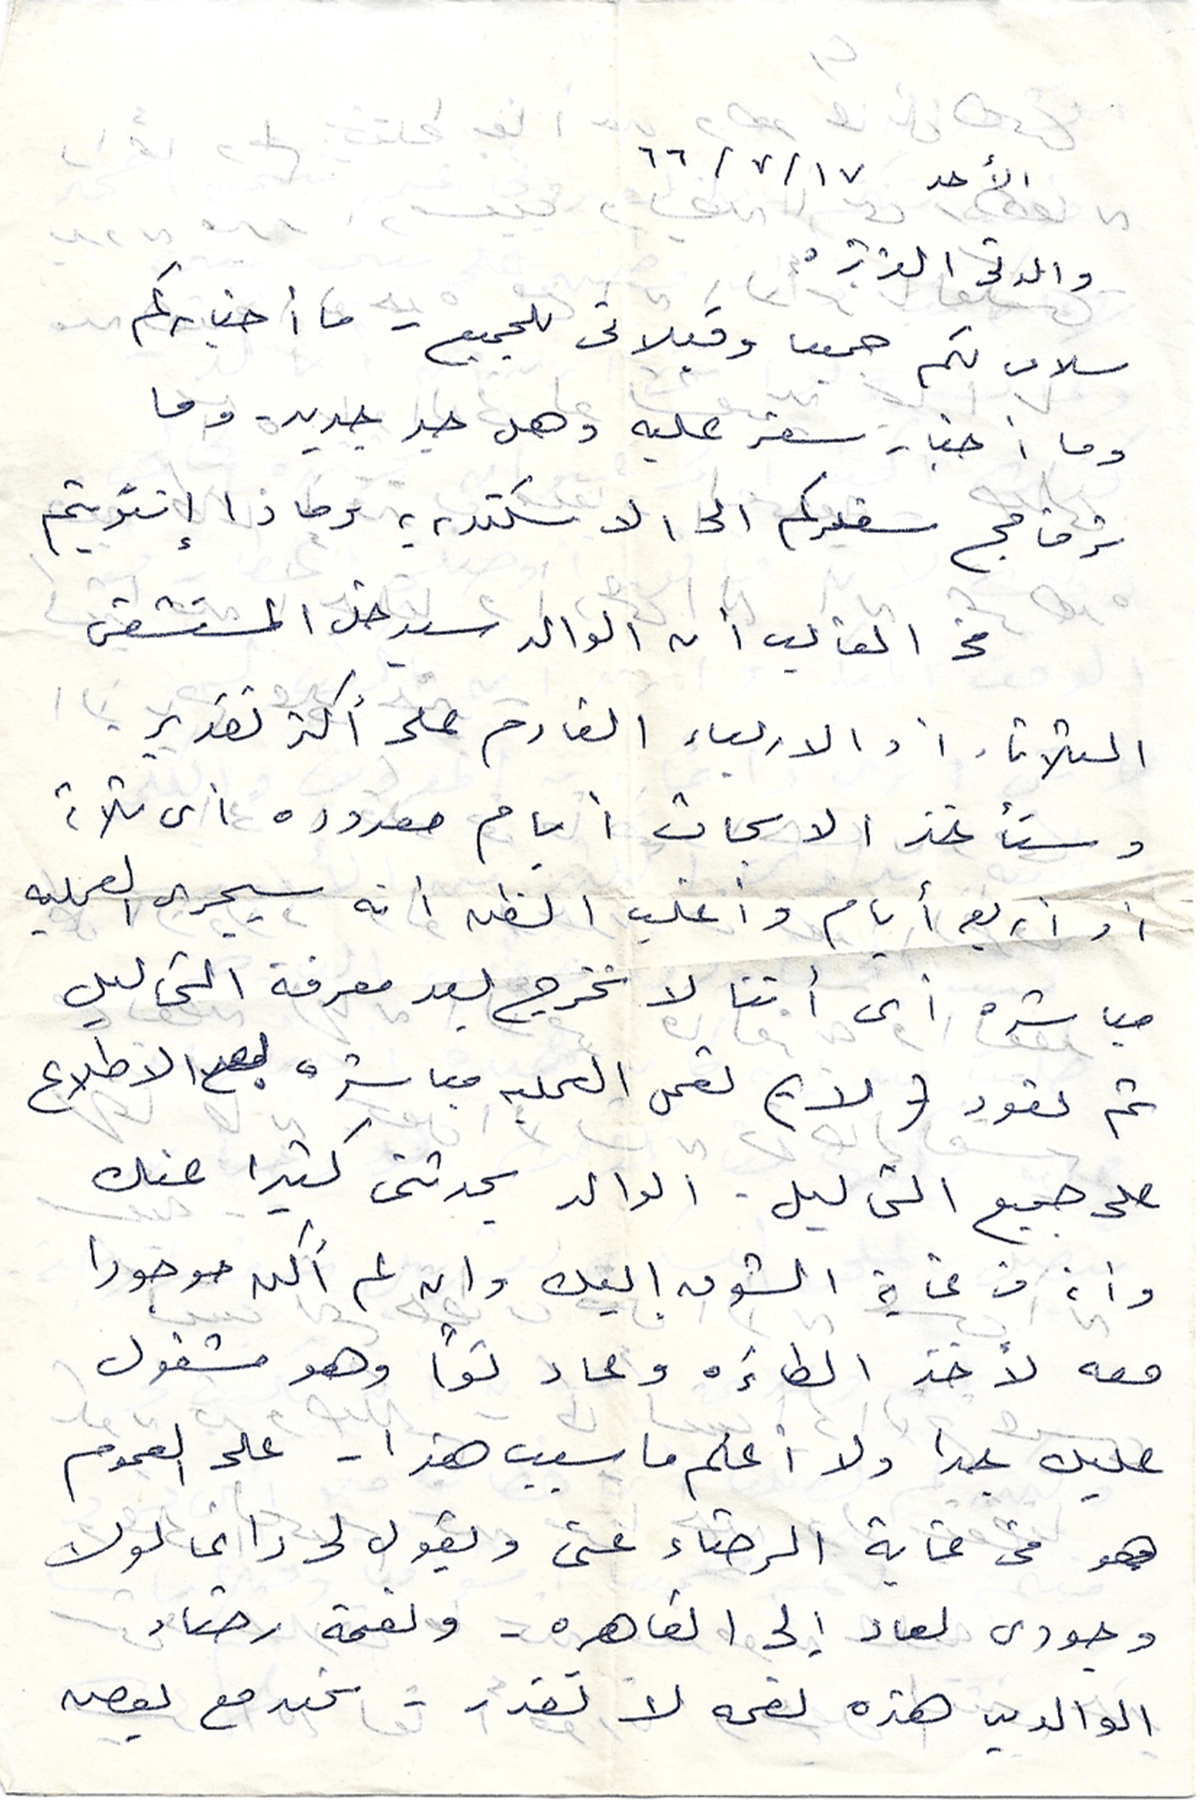 الأحد ١٧/٧/٦٦
والدتى العزيزه
سلامى لكم جميعا وقبلاتى للجميع - ما أخباركم
وما أخبار سفر عليه وهل جد جديد - وما
برنامج سفركم الى الاسكندريه وماذا إنتويتم
فى الغالب أن الوالد سيدخل المستشفى
الثلاثاء أو الاربعاء القادم على أكثر تقدير
وستأخذ الابحاث أيام معدوده أى ثلاثة
أو أربع أيام وأغلب الظن انه سيجرى العمليه
مباشرة أى أننا لا نخرج بعد معرفة التحاليل
ثم نعود ولكن تعمل العمليه مباشرة بعد الاطلاع
على جميع التحاليل - الوالد يحدثنى كثيرا عنك
وأنه فى غاية الشوق إليك وان لم أكن موجودا
معه لأخذ الطائره وعاد توا وهو مشغول
عليك جدا ولا أعلم ما سبب هذا - على العموم
هو فى غاية الرضاء عنى ويقول لى دائما لولا
وجودى لعاد إلى القاهره - ونعمة رضاء
الوالدين هذه نعمه لا تقدر - نحن مع بعض